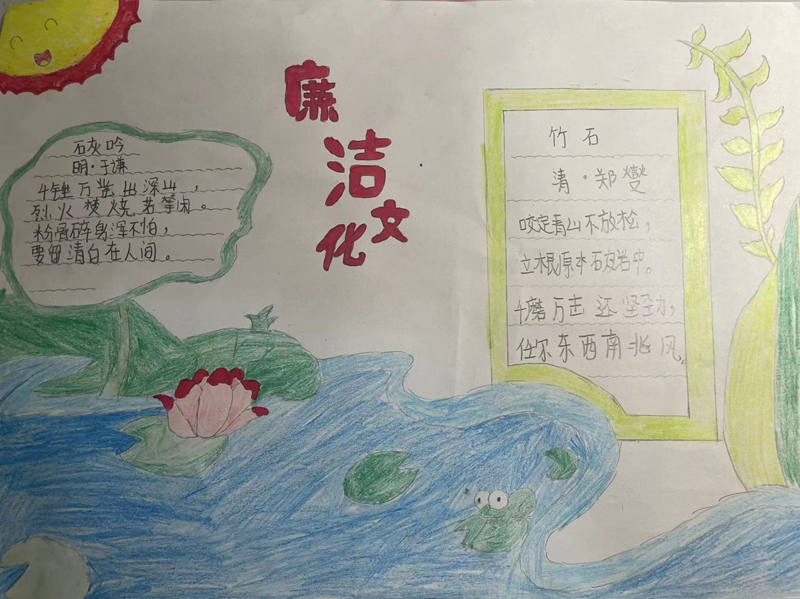 廉洁文化
石灰吟
明·于谦
千锤万凿出深山，
烈火焚烧若等闲。
粉骨碎身浑不怕，
要留清白在人间。
竹石
清·郑燮
咬定青山不放松，
立根原本破岩中。
千磨万击还坚劲，
任尔东西南北风。